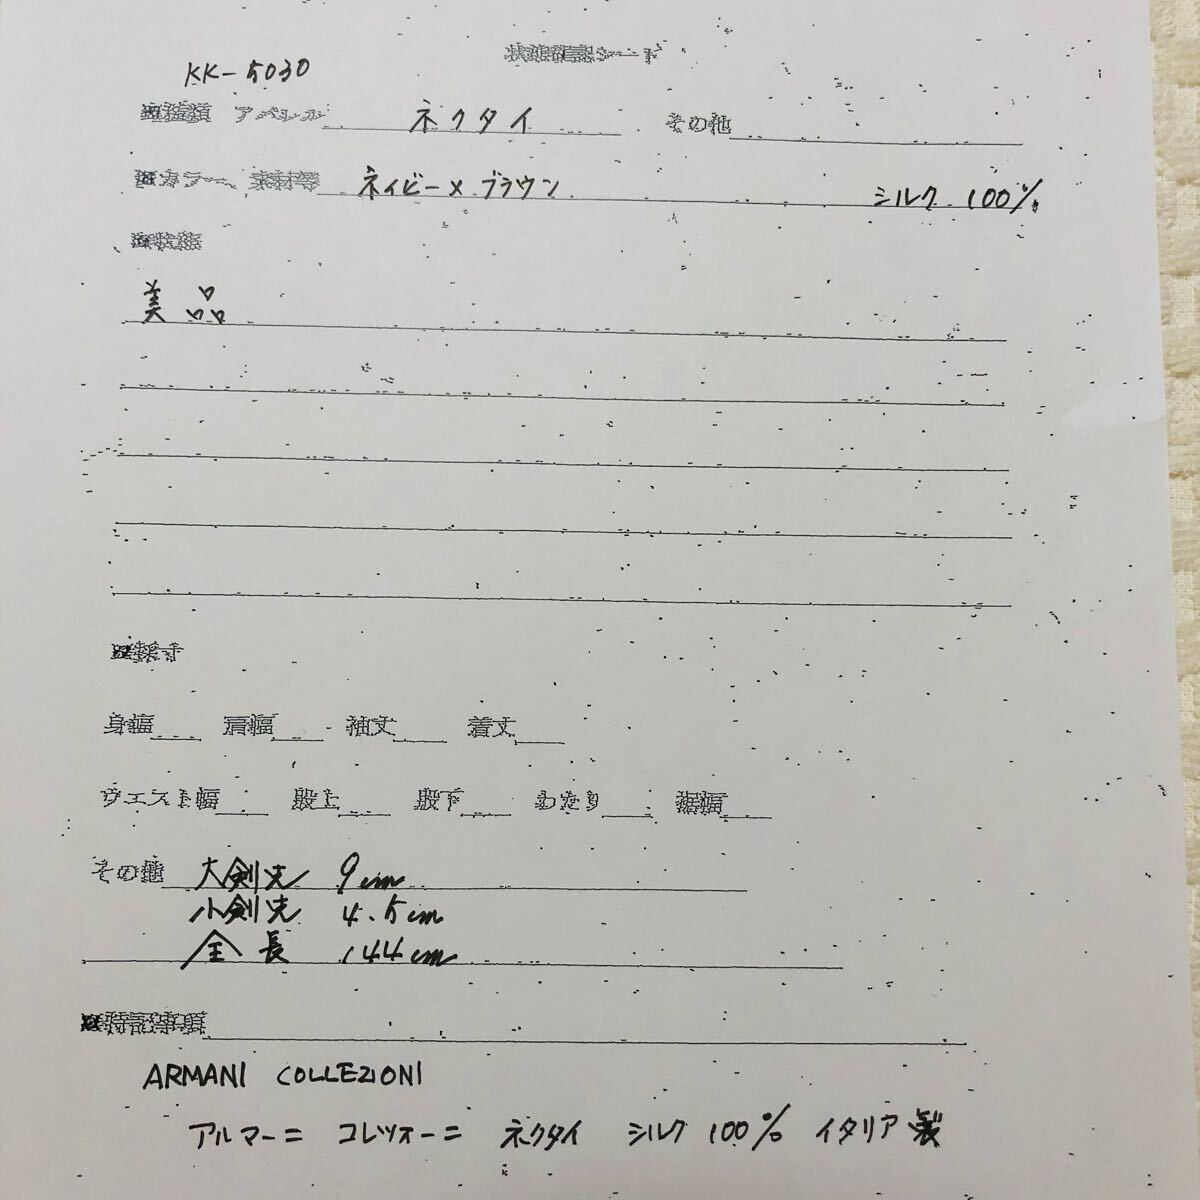 状態確認シート
KK-5030
■種類 アパレル ネクタイ その他
■カラー、素材等 ネイビー×ブラウン シルク 100%
■状態
美品
■採寸
身幅 肩幅 袖丈 着丈
ウエスト幅 股上 股下 わたり 裾幅
その他 大剣先 9cm
小剣先 4.5cm
全長 144cm
■特記事項
ARMANI COLLEZIONI
アルマーニ コレツォーニ ネクタイ シルク 100% イタリア製